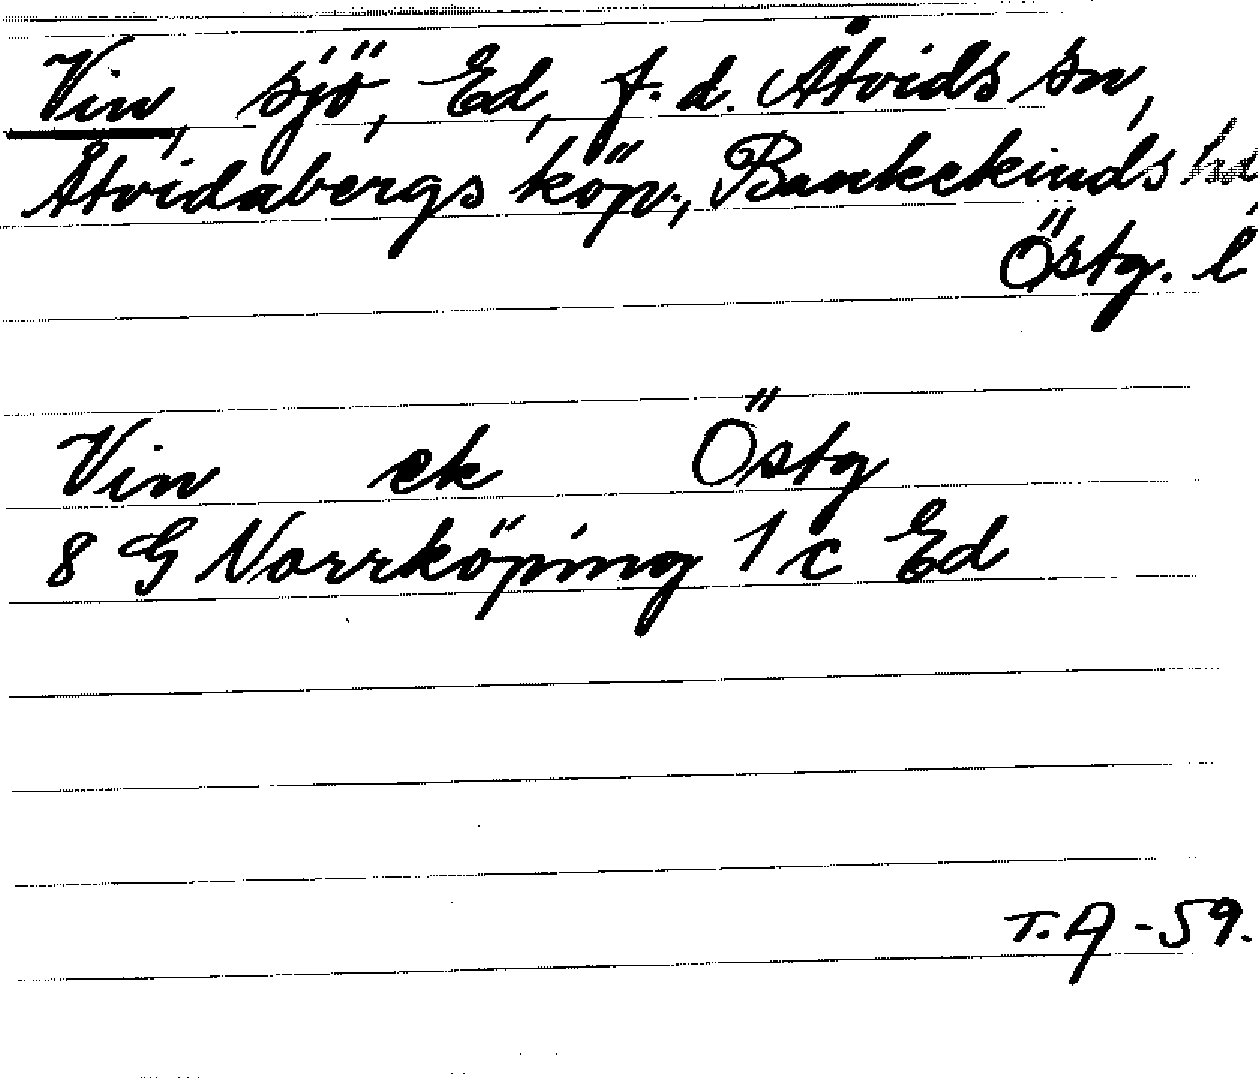 Vin, sjö, Ed, f.d. Åtvids sn,
Åtvidabergs köp., Bankekinds hd
Östg. l
Vin ek Östg
8 G Norrköping 1 c Ed
T.A -59.